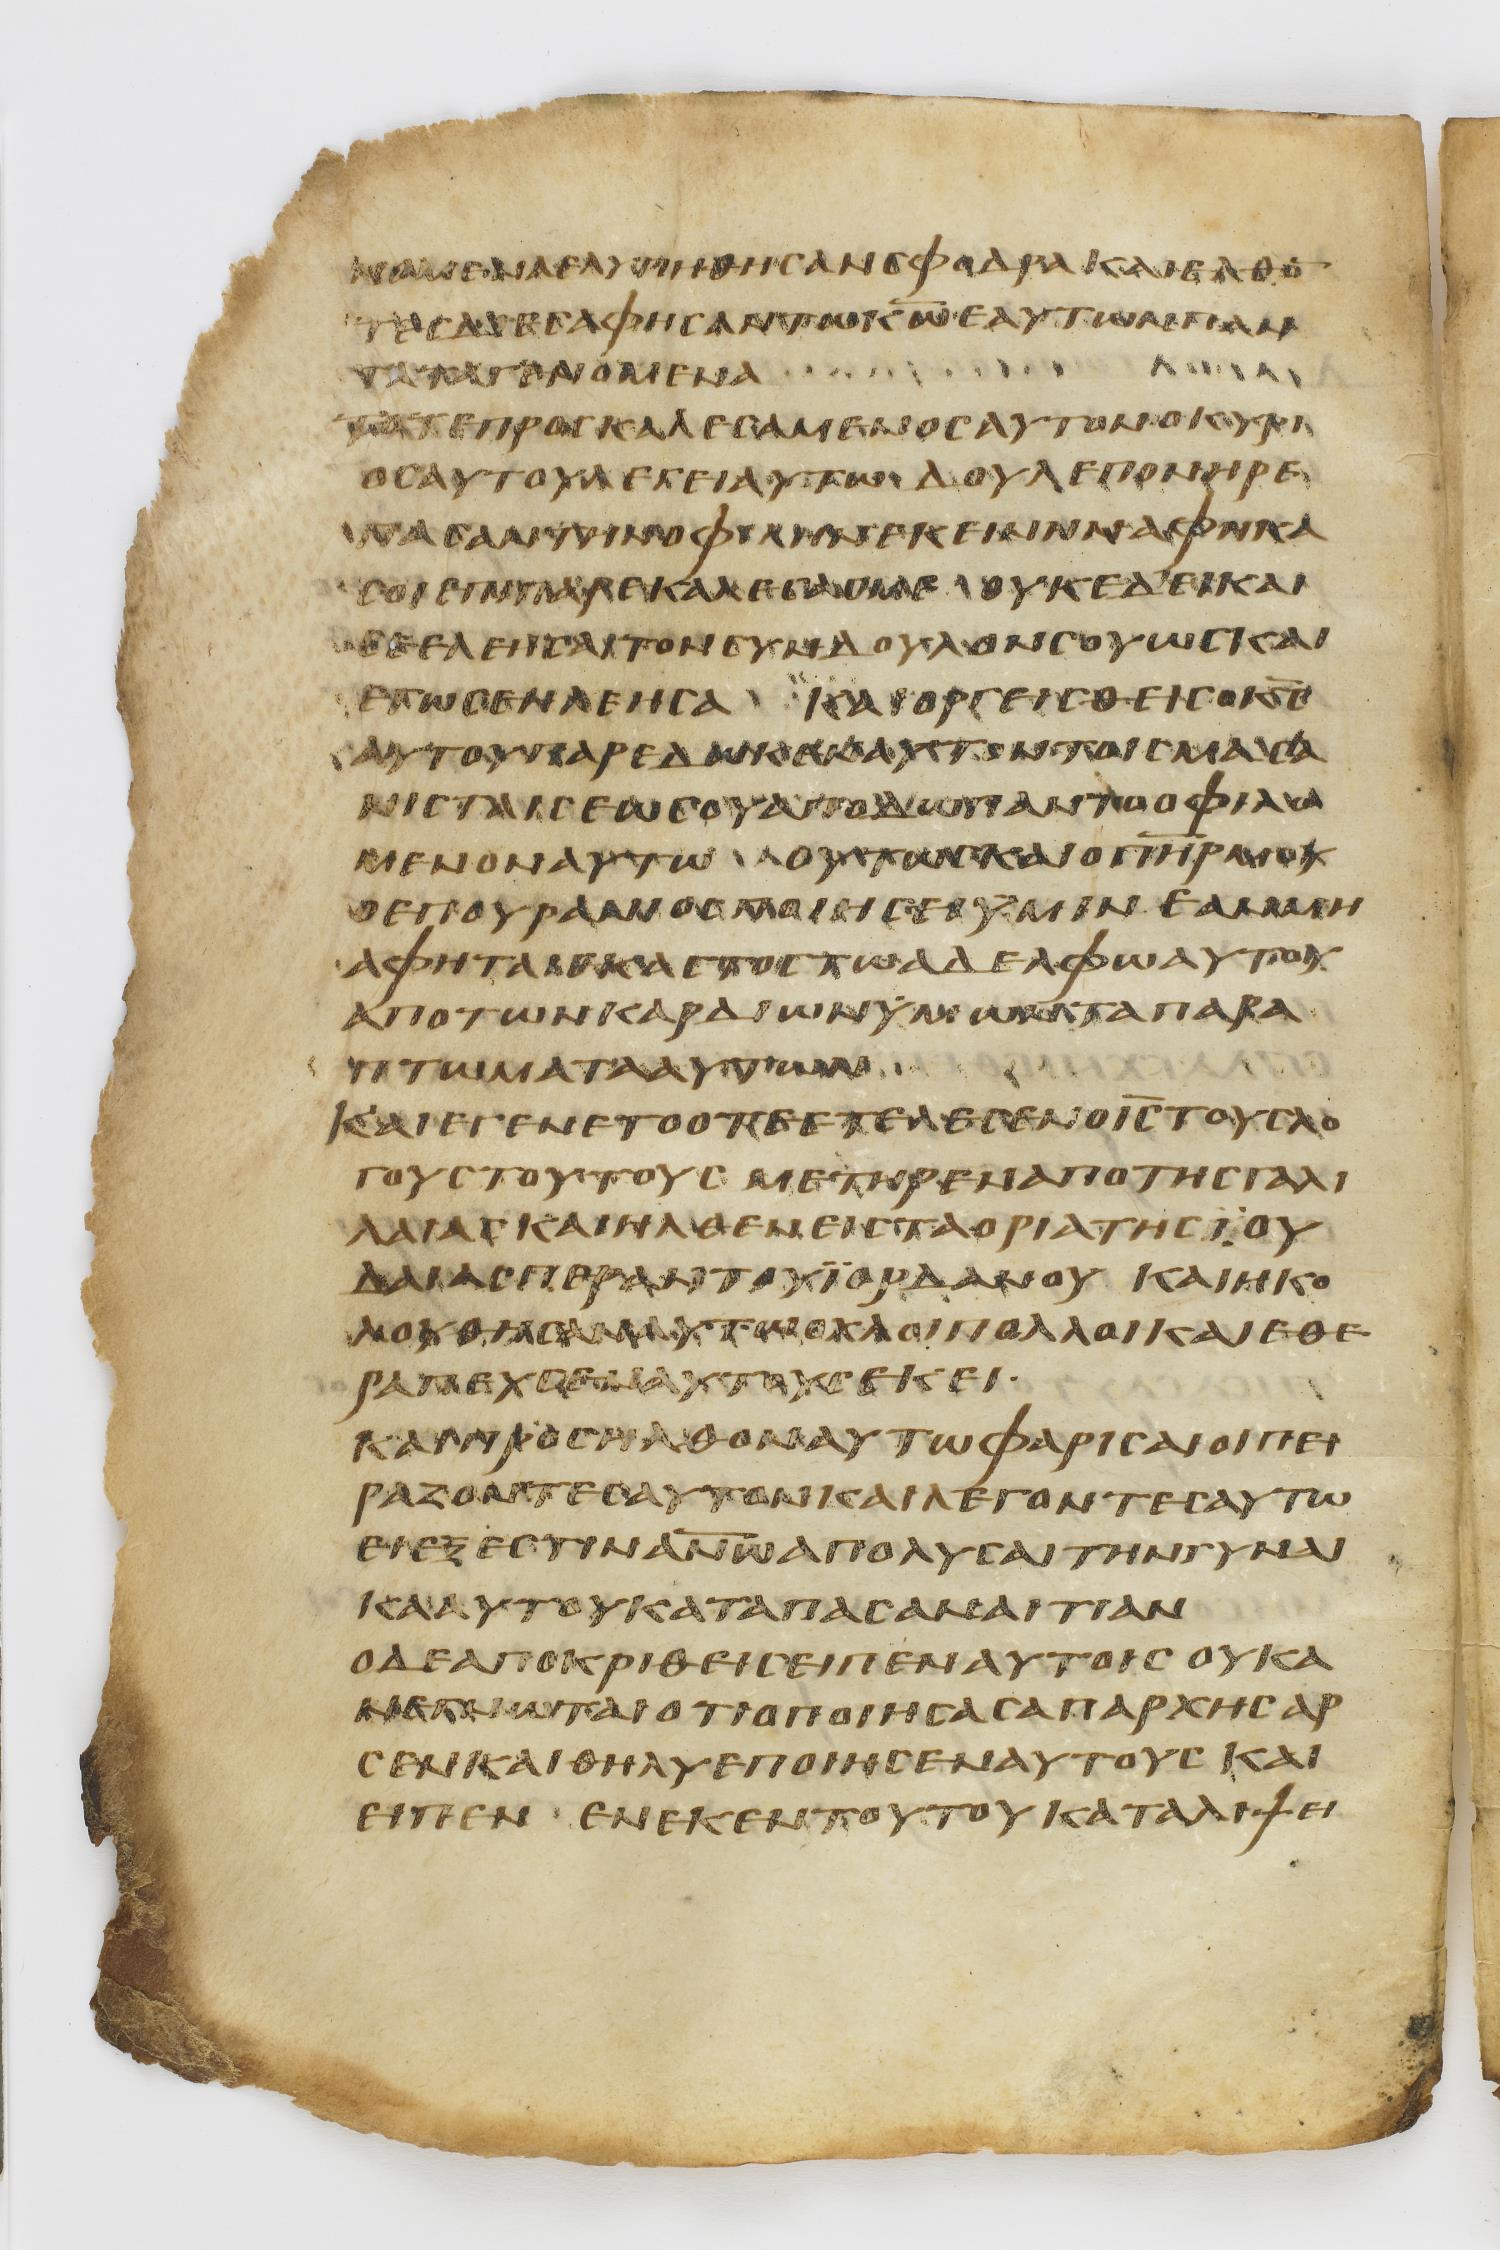 νομενα ελυπηθησαν σφοδρα και ελθο̅
τες διεσαφησαν τω κ̅ω̅ εαυτων παν
τα τα γενομενα
τοτε προσκαλεσαμενος αυτον ο κυρι
ος αυτου λεγει αυτω δουλε πονηρε
πασαν την οφιλην εκεινην αφηκα
σοι επι παρεκαλεσας με ουκ εδει και
σε ελεησαι τον συνδουλον σου ως και
εγω σε ηλεησα και οργεισθεις ο κ̅ς̅
αυτου παρεδωκεν αυτον τοις βασα
νισταις εως ου αποδω παν το οφιλο
μενον αυτω ουτως και ο π̅η̅ρ̅ μου
ο επουρανιος ποιησει ϋμιν εαν μη
αφηται εκαστος τω αδελφω αυτου
απο των καρδιων ϋμων τα παρα
πτωματα αυτων
Και εγενετο οτε ετελεσεν ο ι̅ς̅ τους λο
γους τουτους μετηρεν απο της γαλι
λαιας και ηλθεν εις τα ορια της ϊου
δαιας περαν του ϊορδανου και ηκο
λουθησαν αυτω οχλοι πολλοι και εθε
ραπευσεν αυτους εκει
και προσηλθον αυτω φαρισαιοι πει
ραζοντες αυτον και λεγοντες αυτω
ει εξεστιν αν̅ω̅ απολυσαι την γυναι
κα αυτου κατα πασαν αιτιαν
ο δε αποκριθεις ειπεν αυτοις ουκ α
νεγνωται οτι ο ποιησας απ αρχης αρ
σεν και θηλυ εποιησεν αυτους και
ειπεν ενεκεν τουτου καταλιψει